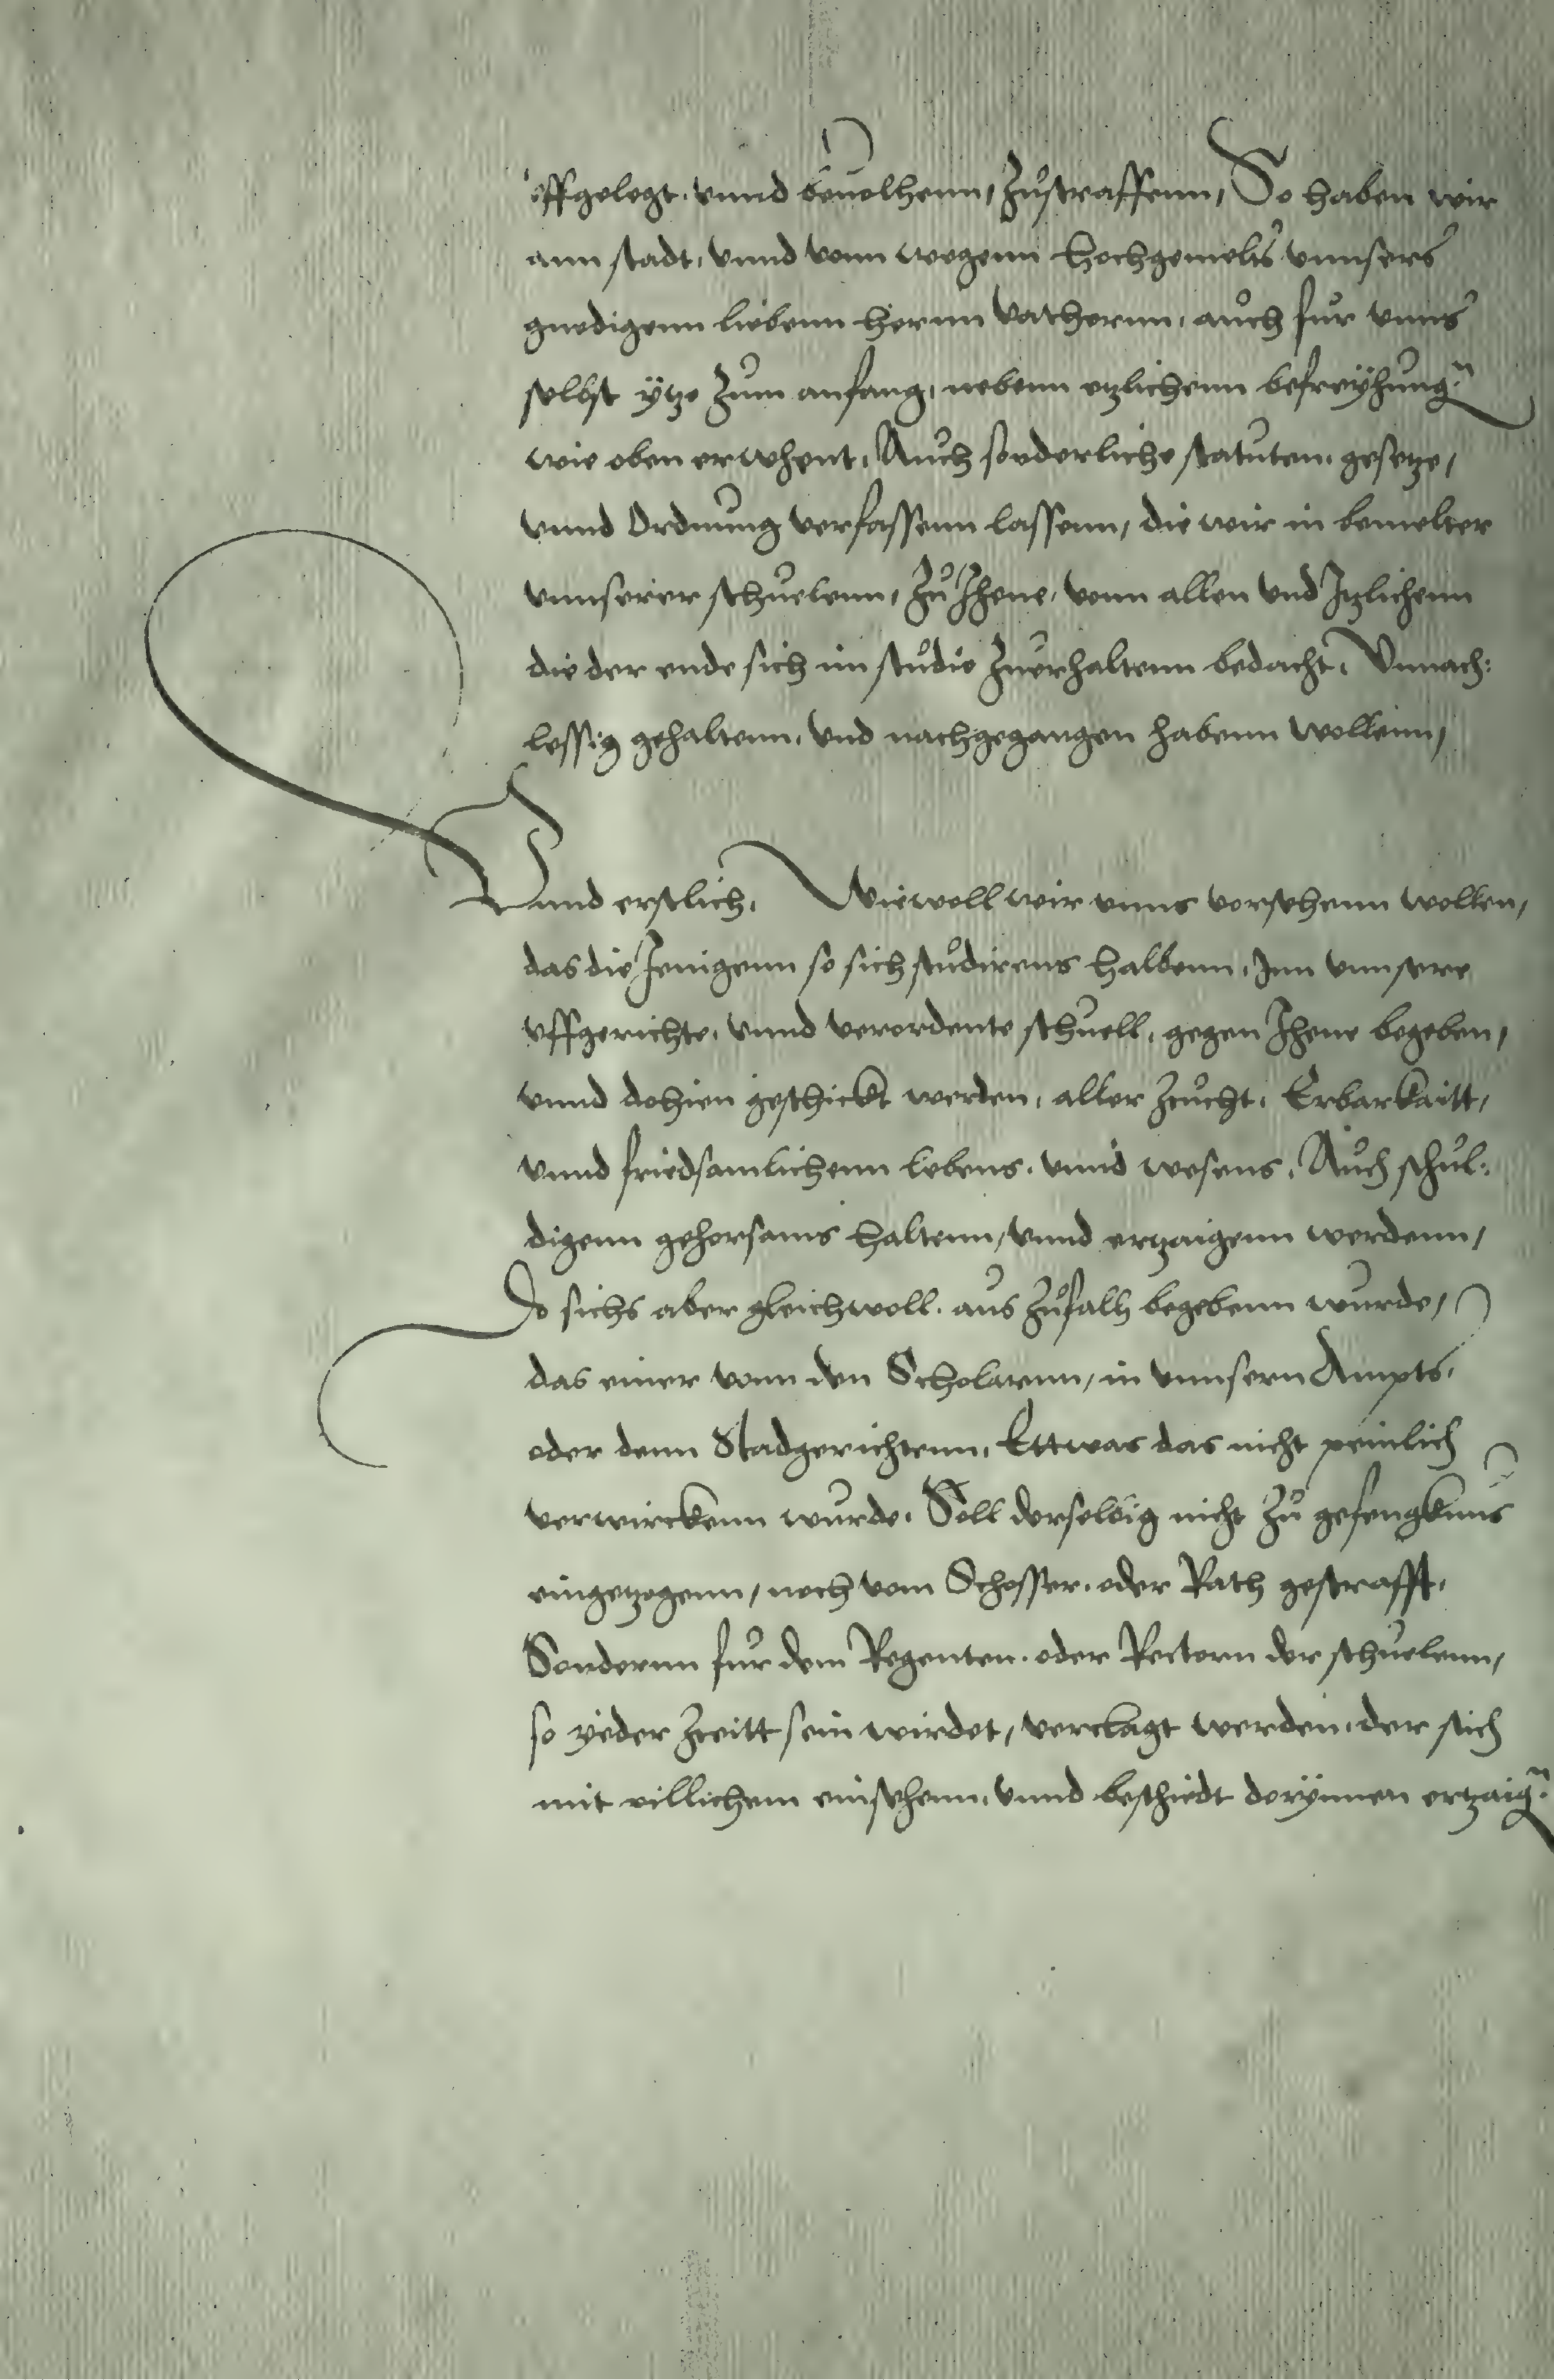 vffgelegt. vnnd beuolhenn, Zustraffenn, So haben wir
ann stadt, vnnd vonn wegenn hochgemelts vnnsers
gnedigenn liebenn herrnn vathernn, auch fur vnns
selbst ytze Zum anfang, nebenn etzlichenn befreyhung~
wie oben erwhent, Auch sonderliche statuten, gesetze,
vnnd Ordnung verfassenn lassenn, die wir in bemelter
vnnserer schuelenn, Zu Jhene, vonn allen vnd Itzlichenn
die der ende sich im studio Zuerhaltenn bedacht, Vnnach:
lessig gehaltenn, vnd nachgegangen habenn wollenn,
Vnnd erstlich, Wiewoll wir vnns vorsehenn wollen,
das die Jenigenn so sich studirens halbenn, Inn vnnsere
vffgerichte, vnnd verordente schuell, gegen Jhene begeben,
vnnd dohien geschickt werden, aller Zcucht, Erbarkaitt,
vnnd friedsamlichenn lebens, vnnd wesens, Auch schul:
digenn gehorsams haltenn, vnnd ertzaigenn werdenn,
Do sichs aber gleichwoll. aus Zufall begebenn wurde,
das einer vonn den Scholarnn, in vnnsern Ampts,
oder denn Stadgerichtenn, Ettwas das nicht peinlich
verwirckenn wurde, Soll derselbig nicht Zu gefengknus
eingetzogenn, noch vom Schosser, oder Rath gestrafft,
Sondernn fur dem Regenten. oder Rectorn der schuelenn,
so yeder Zceitt sein wirdet, verclagt werden, der sich
mit pillichem einsehenn, vnnd beschiedt dorynnen ertzaig~